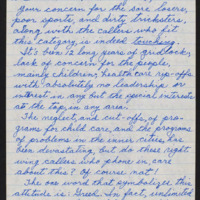 your concern for the sore losers,
poor sports, and dirty tricksters,
along with the callers who fit
this category is indeed touching.
It's been 12 long years of gridlock,
lack of concern for the people,
mainly children, health care rip-offs
with absolutely no leadership or
interest in any but the special interests
at the top, in any area.
The neglect, and cut-offs, of pro-
grams for child care, and the programs
of problems in the inner cities, has
been devastating, but do these right
wing callers who phone in care
about this? Of course not!
The one word that symbolizes this
attitude is: Greed. In fact, unlimited